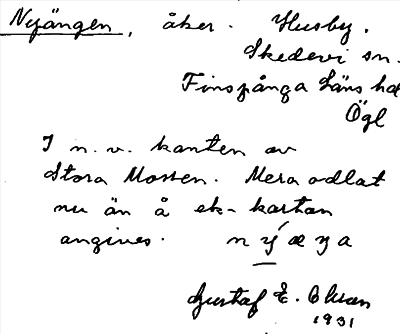 Nyängen, åker. Husby.
Skedevi sn.
Finspånga Läns hd
Ögl
I n.v. kanten av
Stora Mossen. Mera odlat
nu än å ek-kartan
angives.
Gustaf E. Olsson
1931